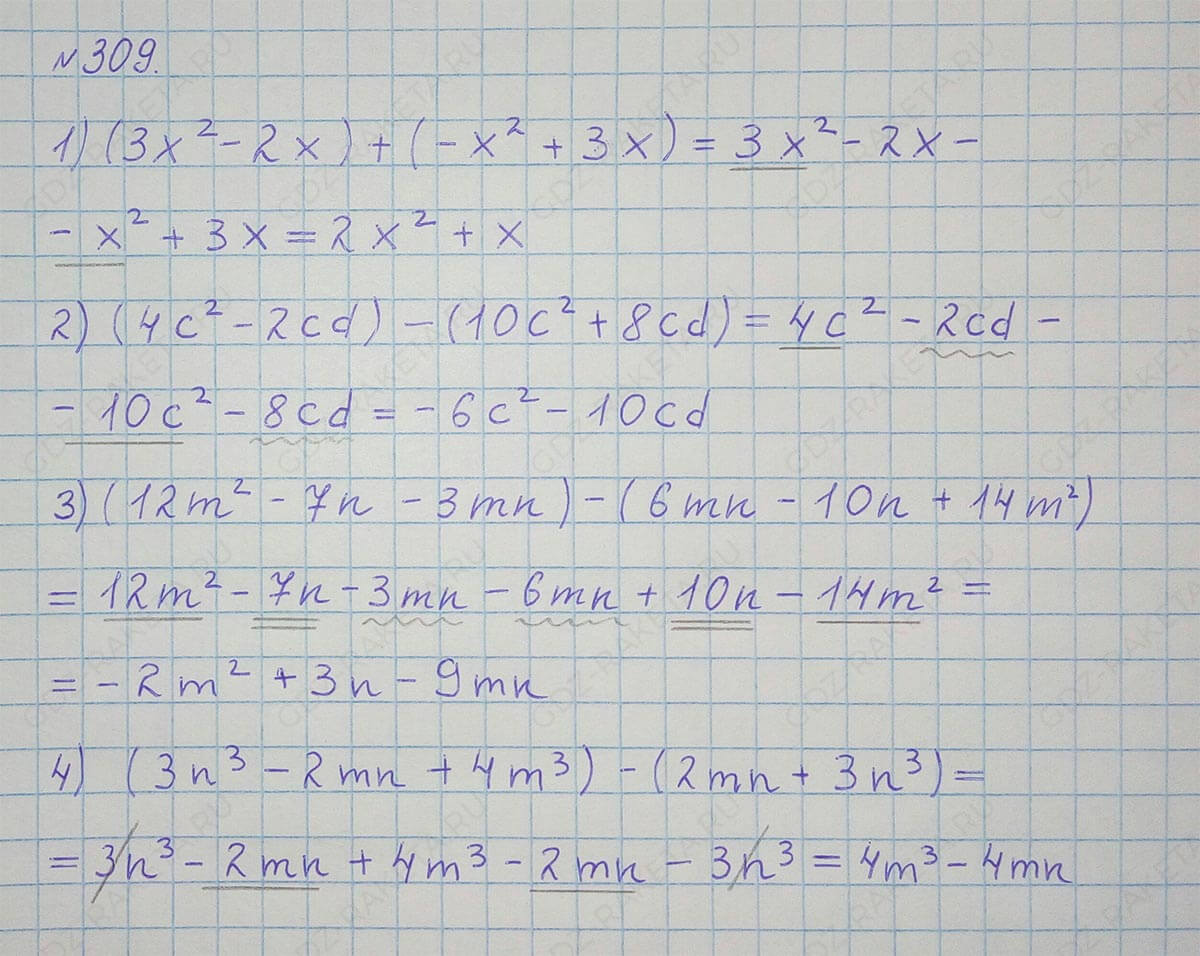 №309.
1) (3x² - 2x) + (-x² + 3x) = 3x² - 2x -
- x² + 3x = 2x² + x
2) (4c² - 2cd) - (10c² + 8cd) = 4c² - 2cd -
- 10c² - 8cd = -6c² - 10cd
3) (12m² - 7n - 3mn) - (6mn - 10n + 14m²)
= 12m² - 7n - 3mn - 6mn + 10n - 14m² =
= -2m² + 3n - 9mn
4) (3n³ - 2mn + 4m³) - (2mn + 3n³) =
= 3n³ - 2mn + 4m³ - 2mn - 3n³ = 4m³ - 4mn
GDZ-RAKETA.RU